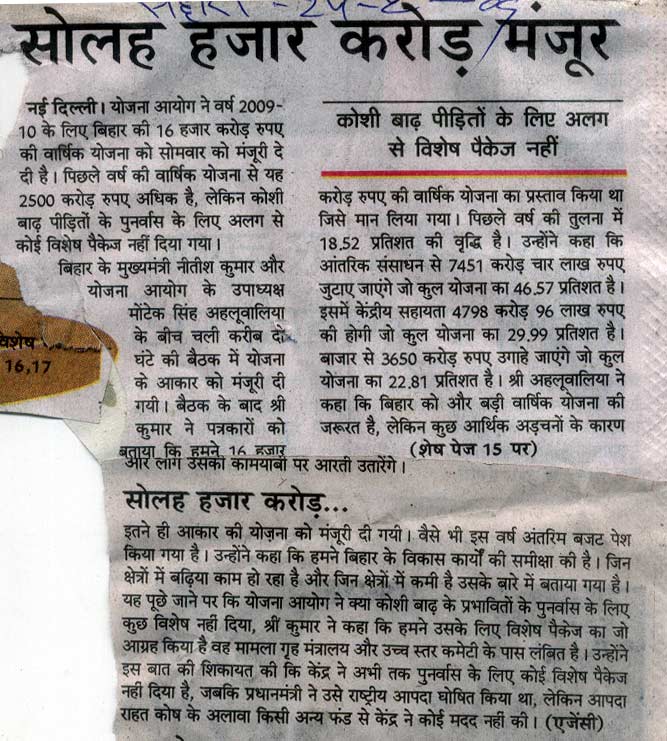 सहारा - 24-2-09
सोलह हजार करोड़ मंजूर
नई दिल्ली। योजना आयोग ने वर्ष 2009-
10 के लिए बिहार की 16 हजार करोड़ रुपए
की वार्षिक योजना को सोमवार को मंजूरी दे
दी है। पिछले वर्ष की वार्षिक योजना से यह
2500 करोड़ रुपए अधिक है, लेकिन कोशी
बाढ़ पीड़ितों के पुनर्वास के लिए अलग से
कोई विशेष पैकेज नहीं दिया गया।
बिहार के मुख्यमंत्री नीतीश कुमार और
योजना आयोग के उपाध्यक्ष
मोंटेक सिंह अहलूवालिया
के बीच चली करीब दो
घंटे की बैठक में योजना
के आकार को मंजूरी दी
गयी। बैठक के बाद श्री
कुमार ने पत्रकारों को
बताया कि हमने 16 हजार
कोशी बाढ़ पीड़ितों के लिए अलग
से विशेष पैकेज नहीं
करोड़ रुपए की वार्षिक योजना का प्रस्ताव किया था
जिसे मान लिया गया। पिछले वर्ष की तुलना में
18.52 प्रतिशत की वृद्धि है। उन्होंने कहा कि
आंतरिक संसाधन से 7451 करोड़ चार लाख रुपए
जुटाए जाएंगे जो कुल योजना का 46.57 प्रतिशत है।
इसमें केंद्रीय सहायता 4798 करोड़ 96 लाख रुपए
की होगी जो कुल योजना का 29.99 प्रतिशत है।
बाजार से 3650 करोड़ रुपए उगाहे जाएंगे जो कुल
योजना का 22.81 प्रतिशत है। श्री अहलूवालिया ने
कहा कि बिहार को और बड़ी वार्षिक योजना की
जरूरत है, लेकिन कुछ आर्थिक अड़चनों के कारण
(शेष पेज 15 पर)
विशेष
16,17
और लोग उसकी कामयाबी पर आरती उतारेंगे।
सोलह हजार करोड़...
इतने ही आकार की योजना को मंजूरी दी गयी। वैसे भी इस वर्ष अंतरिम बजट पेश
किया गया है। उन्होंने कहा कि हमने बिहार के विकास कार्यों की समीक्षा की है। जिन
क्षेत्रों में बढ़िया काम हो रहा है और जिन क्षेत्रों में कमी है उसके बारे में बताया गया है।
यह पूछे जाने पर कि योजना आयोग ने क्या कोशी बाढ़ के प्रभावितों के पुनर्वास के लिए
कुछ विशेष नहीं दिया, श्री कुमार ने कहा कि हमने उसके लिए विशेष पैकेज का जो
आग्रह किया है वह मामला गृह मंत्रालय और उच्च स्तर कमेटी के पास लंबित है। उन्होंने
इस बात की शिकायत की कि केंद्र ने अभी तक पुनर्वास के लिए कोई विशेष पैकेज
नहीं दिया है, जबकि प्रधानमंत्री ने उसे राष्ट्रीय आपदा घोषित किया था, लेकिन आपदा
राहत कोष के अलावा किसी अन्य फंड से केंद्र ने कोई मदद नहीं की। (एजेंसी)